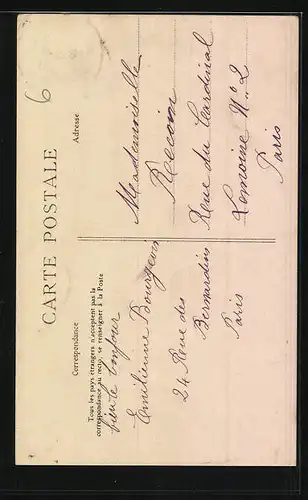 CARTE POSTALE
Correspondance
Tous les pays étrangers n'acceptent pas la
correspondance au recto, se renseigner à la Poste
bonjour
Emilienne Bourgeois
24 Rue des
Bernardins
Paris
Adresse
Mademoiselle
Rue du Cardinal
Lemoine Nº 2
Paris
6